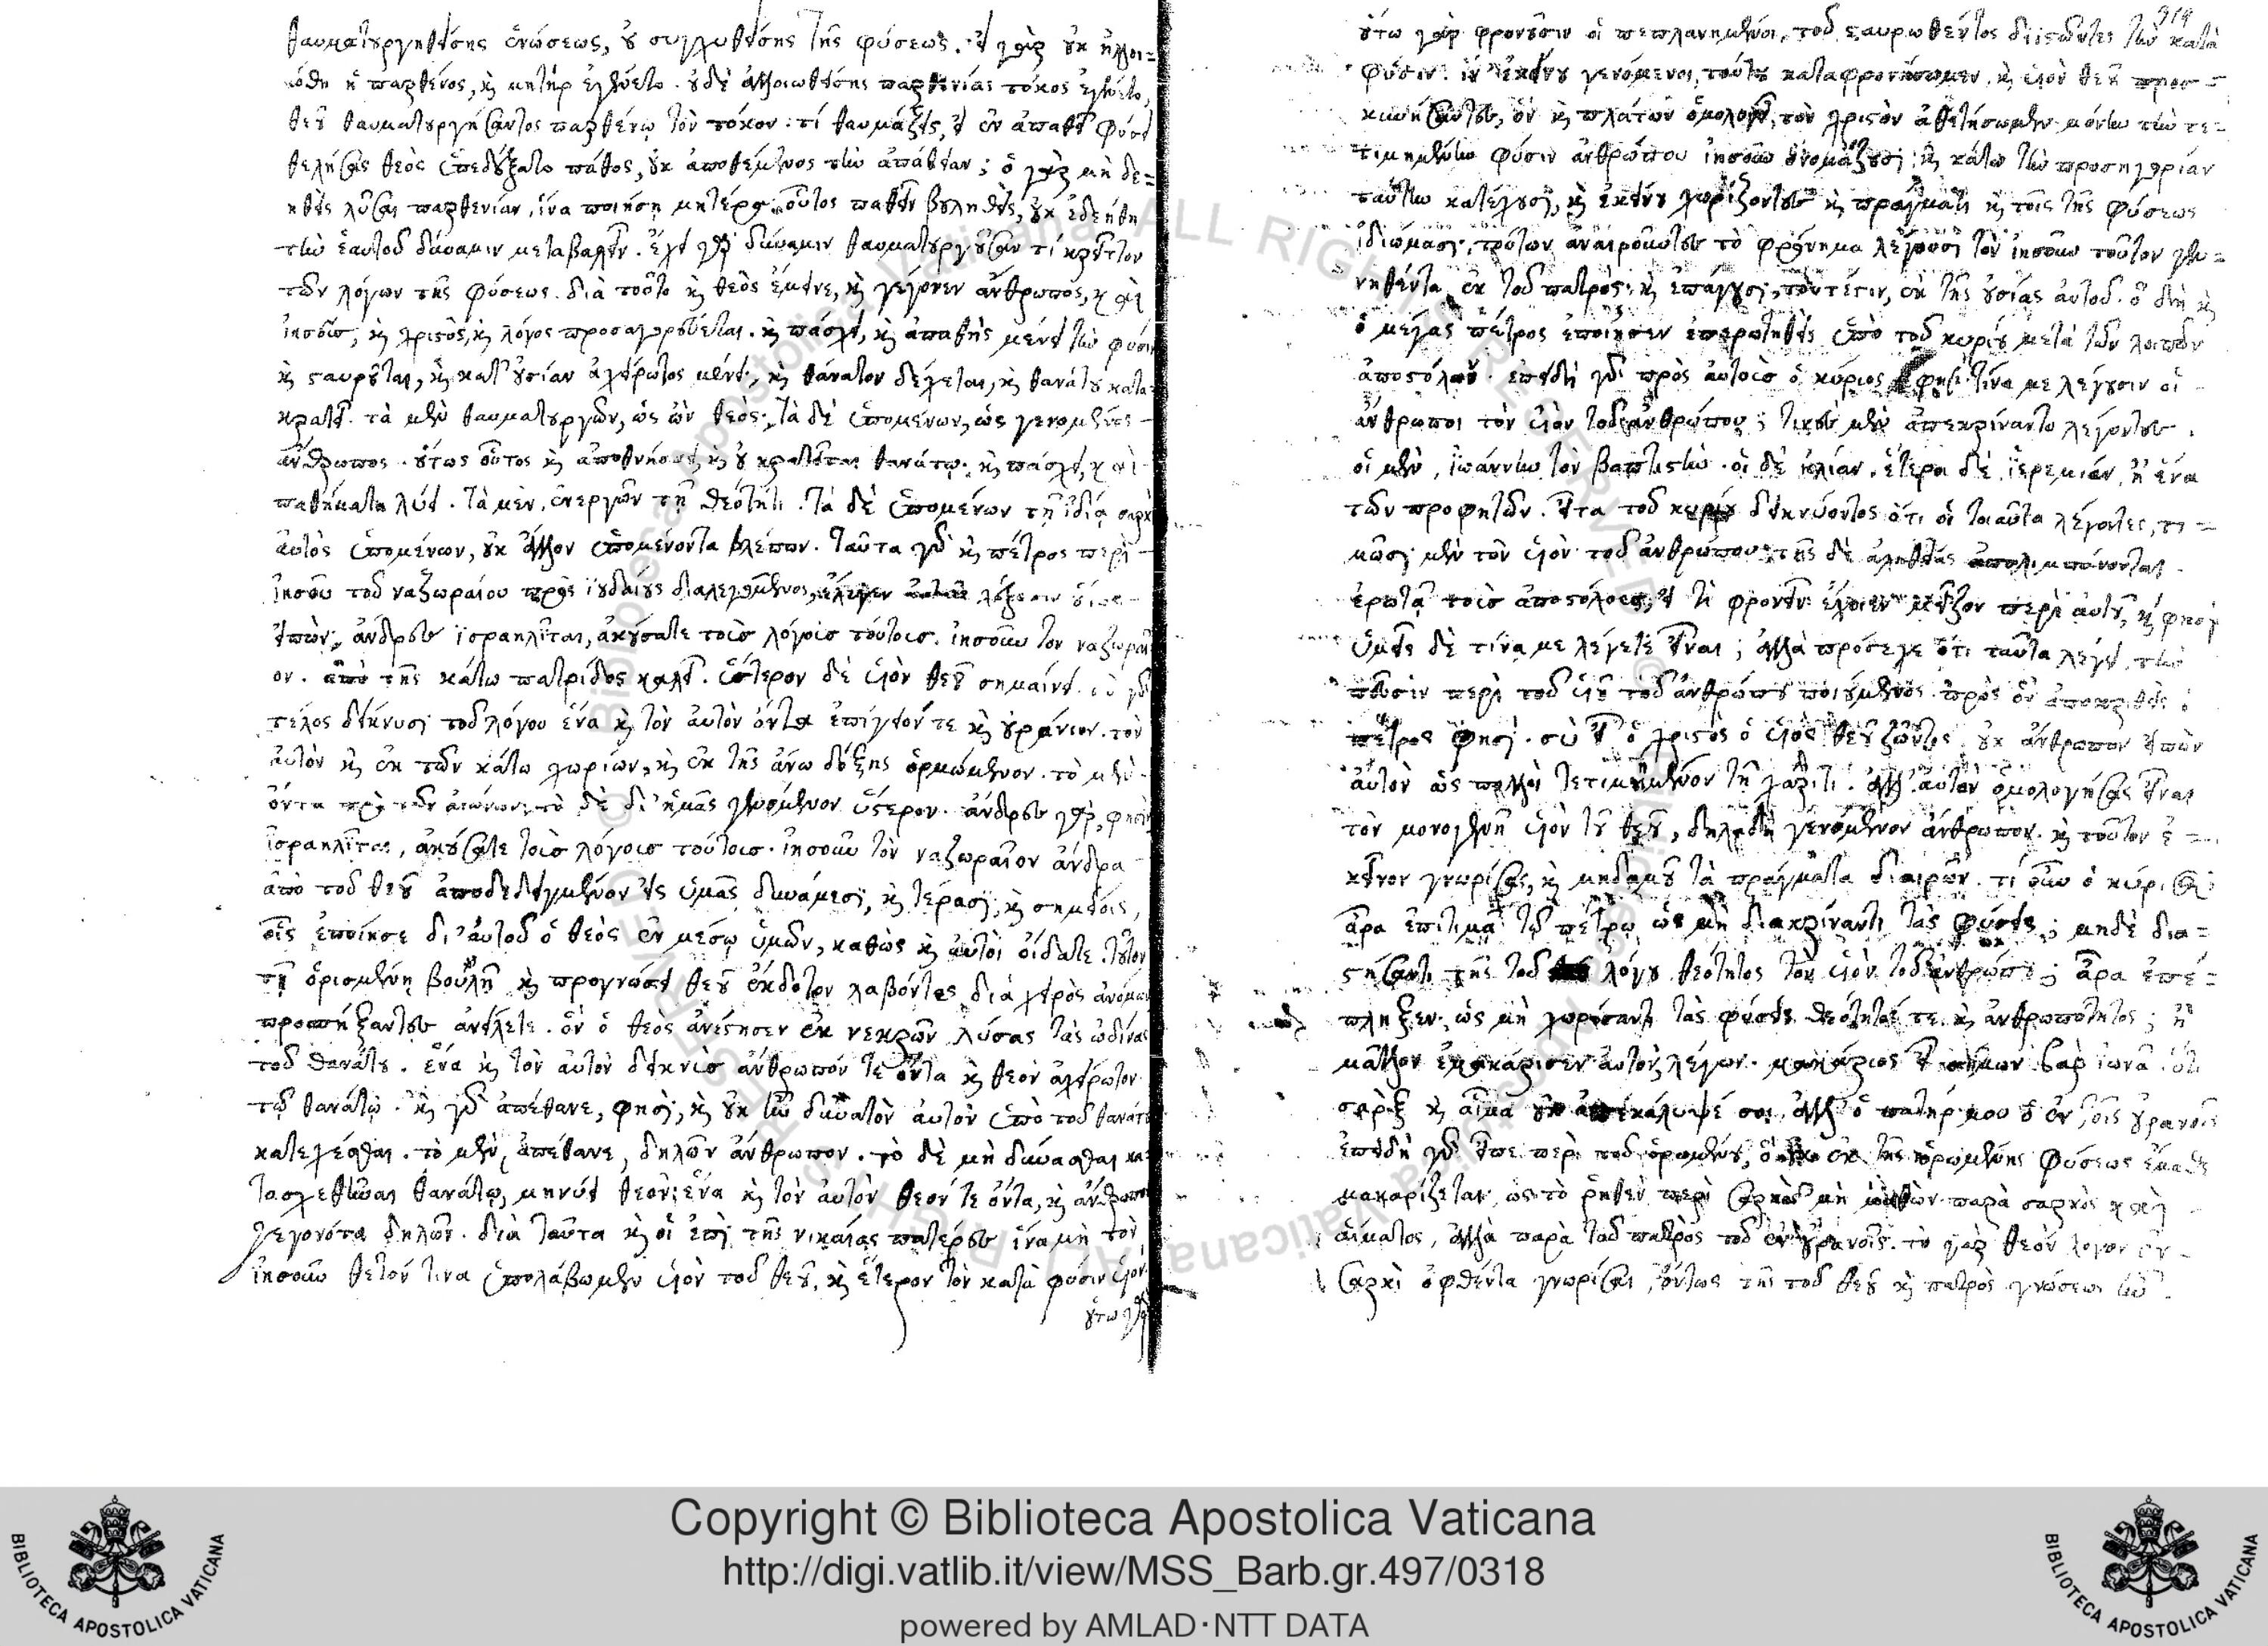 θαυματουργηθείσης ἑνώσεως, οὐ συγχυθείσης τῆς φύσεως. εἰ γὰρ οὐκ ἠλλοι-
ώθη ἡ παρθένος, καὶ μητὴρ ἐγένετο. οὐδὲ ἀλλοιωθείσης παρθενίας τόκος ἐγένετο,
θεοῦ θαυματουργήσαντος παρθένῳ τὸν τόκον. τί θαυμάζεις, εἰ ἐν ἀπαθεῖ φύσει
θελήσας θεὸς ὑπεδέξατο πάθος, οὐκ ἀποθέμενος τὴν ἀπάθειαν; ὁ γὰρ μὴ δε-
ηθεὶς λῦσαι παρθενίαν, ἵνα ποιήσῃ μητέρα. οὗτος παθεῖν βουληθεὶς, οὐκ ἐδεήθη
τὴν ἑαυτοῦ δύναμιν μεταβαλεῖν. ἔχει γὰρ δύναμιν θαυματουργοῦσαν τί κρεῖττον
τῶν λόγων τῆς φύσεως. διὰ τοῦτο καὶ θεὸς ἔμεινε, καὶ γέγονεν ἄνθρωπος, καὶ
ἰησοῦς, καὶ χριστὸς, καὶ λόγος προσαγορεύεται. καὶ πάσχει, καὶ ἀπαθὴς μένει τὴν φύσιν
καὶ σταυροῦται, καὶ κατ' οὐσίαν ἄτρωτος μένει, καὶ θάνατον δέχεται, καὶ θανάτου κατα
κρατεῖ. τὰ μὲν θαυματουργῶν, ὡς ὢν θεός. τὰ δὲ ὑπομένων, ὡς γενόμενος
ἄνθρωπος. οὕτως οὗτος καὶ ἀποθνήσκει, καὶ οὐ κρατεῖται θανάτῳ. καὶ πάσχει, καὶ
παθήματα λύει. τὰ μὲν, ἐνεργῶν τῇ θεότητι. τὰ δὲ ὑπομένων τῇ ἰδίᾳ σαρκὶ
αὐτὸς ὑπομένων, οὐκ ἄλλον ὑπομένοντα βλέπων. ταῦτα γὰρ καὶ πέτρος περὶ
ἰησοῦ τοῦ ναζωραίου πρὸς ἰουδαίους διαλεγόμενος,
εἰπὼν, ἄνδρες ἰσραηλῖται, ἀκούσατε τοὺς λόγους τούτους. ἰησοῦν τὸν ναζωραῖ
ον. ἀπὸ τῆς κάτω πατρίδος καλεῖ. ὕστερον δὲ υἱὸν θεοῦ σημαίνει.
τέλος δείκνυσι τοῦ λόγου ἕνα καὶ τὸν αὐτὸν ὄντα ἐπίγειόν τε καὶ οὐράνιον. τὸν
αὐτὸν καὶ ἐκ τῶν κάτω χωρίων, καὶ ἐκ τῆς ἄνω δόξης ὁρμώμενον. τὸ μὲν
ὄντα πρὸ τῶν αἰώνων, τὸ δὲ δι' ἡμᾶς γενόμενον ὕστερον. ἄνδρες γὰρ, φησὶν
ἰσραηλῖται, ἀκούσατε τοὺς λόγους τούτους. ἰησοῦν τὸν ναζωραῖον ἄνδρα
ἀπὸ τοῦ θεοῦ ἀποδεδειγμένον εἰς ὑμᾶς δυνάμεσι, καὶ τέρασι, καὶ σημείοις,
οἷς ἐποίησε δι' αὐτοῦ ὁ θεὸς ἐν μέσῳ ὑμῶν, καθὼς καὶ αὐτοὶ οἴδατε. τοῦτον
τῇ ὁρισμένῃ βουλῇ καὶ προγνώσει θεοῦ ἔκδοτον λαβόντες διὰ χειρὸς ἀνόμων
προσπήξαντες ἀνείλετε. ὃν ὁ θεὸς ἀνέστησεν ἐκ νεκρῶν λύσας τὰς ὠδῖνας
τοῦ θανάτου. ἕνα καὶ τὸν αὐτὸν δεικνὺς ἄνθρωπόν τε ὄντα καὶ θεὸν ἄτρωτον
τῷ θανάτῳ. καὶ γὰρ ἀπέθανε, φησὶ, καὶ οὐκ ἦν δυνατὸν αὐτὸν ὑπὸ τοῦ θανάτου
κατέχεσθαι. τὸ μὲν, ἀπέθανε, δηλῶν ἄνθρωπον. τὸ δὲ μὴ δύνασθαι κα
τασχεθῆναι θανάτῳ, μηνύει θεόν. ἕνα καὶ τὸν αὐτὸν θεόν τε ὄντα, καὶ ἄνθρωπον
γεγονότα δηλῶν. διὰ ταῦτα καὶ οἱ ἐπὶ τῆς νικαίας πατέρες ἵνα μὴ τὸν
ἰησοῦν θετόν τινα ὑπολάβωμεν υἱὸν τοῦ θεοῦ, καὶ ἕτερον τὸν κατὰ φύσιν υἱόν.
οὕτω γὰρ
οὕτω γὰρ φρονοῦσιν οἱ πεπλανημένοι, τοῦ σταυρωθέντος διιστῶντες τὸν κατὰ
φύσιν. ἵν' ἐκείνου γενόμενοι, τούτου καταφρονήσωμεν. καὶ υἱὸν θεοῦ προσ-
κυνήσαντες, ὃν καὶ πλάτων ὁμολογεῖ, τὸν χριστὸν ἀθετήσωμεν. μόνην τὴν τε-
τιμημένην φύσιν ἀνθρώπου ἰησοῦν ὀνομάζουσι. καὶ κάτω τὴν προσηγορίαν
ταύτην κατέχουσι, καὶ ἐκείνου χωρίζοντες καὶ πράγματι καὶ τοῖς τῆς φύσεως
ἰδιώμασι. τούτων ἀναιροῦντες τὸ φρόνημα λέγουσι τὸν ἰησοῦν τοῦτον γεν-
νηθέντα ἐκ τοῦ πατρός. καὶ ἐπάγουσι, τουτέστιν, ἐκ τῆς οὐσίας αὐτοῦ. ὃ δὴ καὶ
ὁ μέγας πέτρος ἐποίησεν ἐπερωτηθεὶς ὑπὸ τοῦ κυρίου μετὰ τῶν λοιπῶν
ἀποστόλων. ἐπειδὴ γὰρ πρὸς αὐτοὺς ὁ κύριος φησι. τίνα με λέγουσιν οἱ
ἄνθρωποι τὸν υἱὸν τοῦ ἀνθρώπου; τινὲς μὲν ἀπεκρίναντο λέγοντες.
οἱ μὲν, ἰωάννην τὸν βαπτιστὴν. οἱ δὲ ἠλίαν. ἕτεροι δὲ ἱερεμίαν, ἢ ἕνα
τῶν προφητῶν. εἶτα τοῦ κυρίου δεικνύοντος ὅτι οἱ τοιαῦτα λέγοντες, τι-
μῶσι μὲν τὸν υἱὸν τοῦ ἀνθρώπου. τῆς δὲ ἀληθείας ἀπολιμπάνονται.
ἐρωτᾷ τοὺς ἀποστόλους, εἰ τι φρονεῖν ἔχοιεν μεῖζον περὶ αὐτοῦ, καὶ φησι
ὑμεῖς δὲ τίνα με λέγετε εἶναι; ἀλλὰ πρόσεχε ὅτι ταῦτα λέγει, τὴν
πεῦσιν περὶ τοῦ υἱοῦ τοῦ ἀνθρώπου ποιούμενος. πρὸς ὃν ἀποκριθεὶς ὁ
πέτρος φησί. σὺ εἶ ὁ χριστὸς ὁ υἱὸς θεοῦ ζῶντος. οὐκ ἄνθρωπον εἰπὼν
αὐτὸν ὡς πολλοὶ τετιμημένον τῇ χάριτι. ἀλλ' αὐτὸν ὁμολογήσας εἶναι
τὸν μονογενῆ υἱὸν τοῦ θεοῦ, δηλαδὴ γενόμενον ἄνθρωπον. καὶ τοῦτον ἐ-
κεῖνον γνωρίσας, καὶ μηδαμοῦ τὰ πράγματα διαιρῶν. τί οὖν ὁ κύριος;
ἆρα ἐπιτιμᾷ τῷ πέτρῳ ὡς μὴ διακρίναντι τὰς φύσεις; μηδὲ δια-
στήσαντι τῆς τοῦ λόγου θεότητος τὸν υἱὸν τοῦ ἀνθρώπου; ἆρα ἐπέ-
πληξεν, ὡς μὴ χωρίσαντι τὰς φύσεις θεότητός τε καὶ ἀνθρωπότητος; ἢ
μᾶλλον ἐμακάρισεν αὐτὸν λέγων. μακάριος εἶ σίμων βαρ ἰωνᾶ. ὅτι
σὰρξ καὶ αἷμα οὐκ ἀπεκάλυψέ σοι, ἀλλ' ὁ πατήρ μου ὁ ἐν τοῖς οὐρανοῖς
ἐπειδὴ γὰρ εἶπε περὶ τοῦ ὁρωμένου, ἐκ τῆς ὁρωμένης φύσεως ἔμαθε
μακαρίζεται, ὡς τὸ ῥηθὲν περὶ σαρκὸς μὴ μαθὼν παρὰ σαρκὸς καὶ
αἵματος, ἀλλὰ παρὰ τοῦ πατρὸς τοῦ ἐν οὐρανοῖς. τὸ γὰρ θεὸν λόγον ἐν
σαρκὶ ὀφθέντα γνωρίσαι, ὄντως τῆς τοῦ θεοῦ καὶ πατρὸς γνώσεως ἦν.
Copyright © Biblioteca Apostolica Vaticana
http://digi.vatlib.it/view/MSS_Barb.gr.497/0318
powered by AMLAD·NTT DATA
BIBLIOTECA APOSTOLICA VATICANA
BIBLIOTECA APOSTOLICA VATICANA